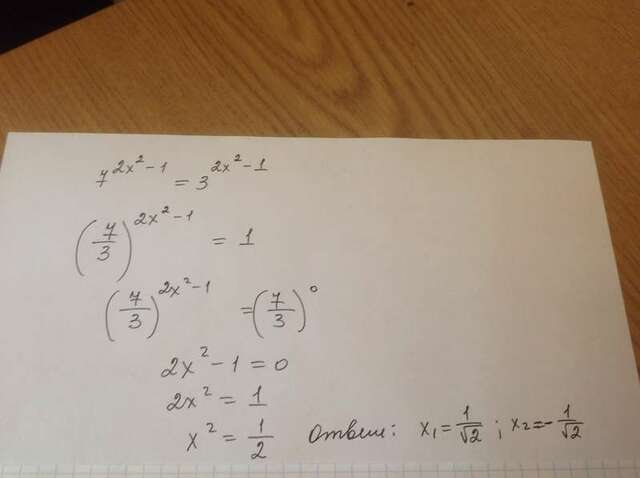 7^{2x²-1} = 3^{2x²-1}
(7/3)^{2x²-1} = 1
(7/3)^{2x²-1} = (7/3)^0
2x² - 1 = 0
2x² = 1
x² = 1/2 Ответ: x₁ = 1/√2 ; x₂ = -1/√2